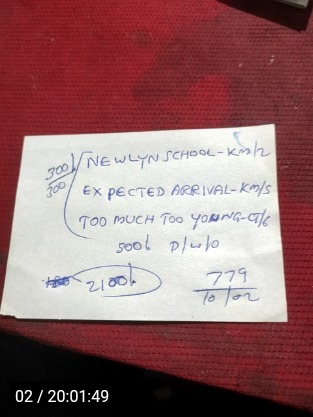 300/300
NEWLYN SCHOOL-KM/2
EXPECTED ARRIVAL-KM/5
TOO MUCH TOO YOUNG-CT/6
500/- P/W/O
2100/-
779
10/02
02 / 20:01:49